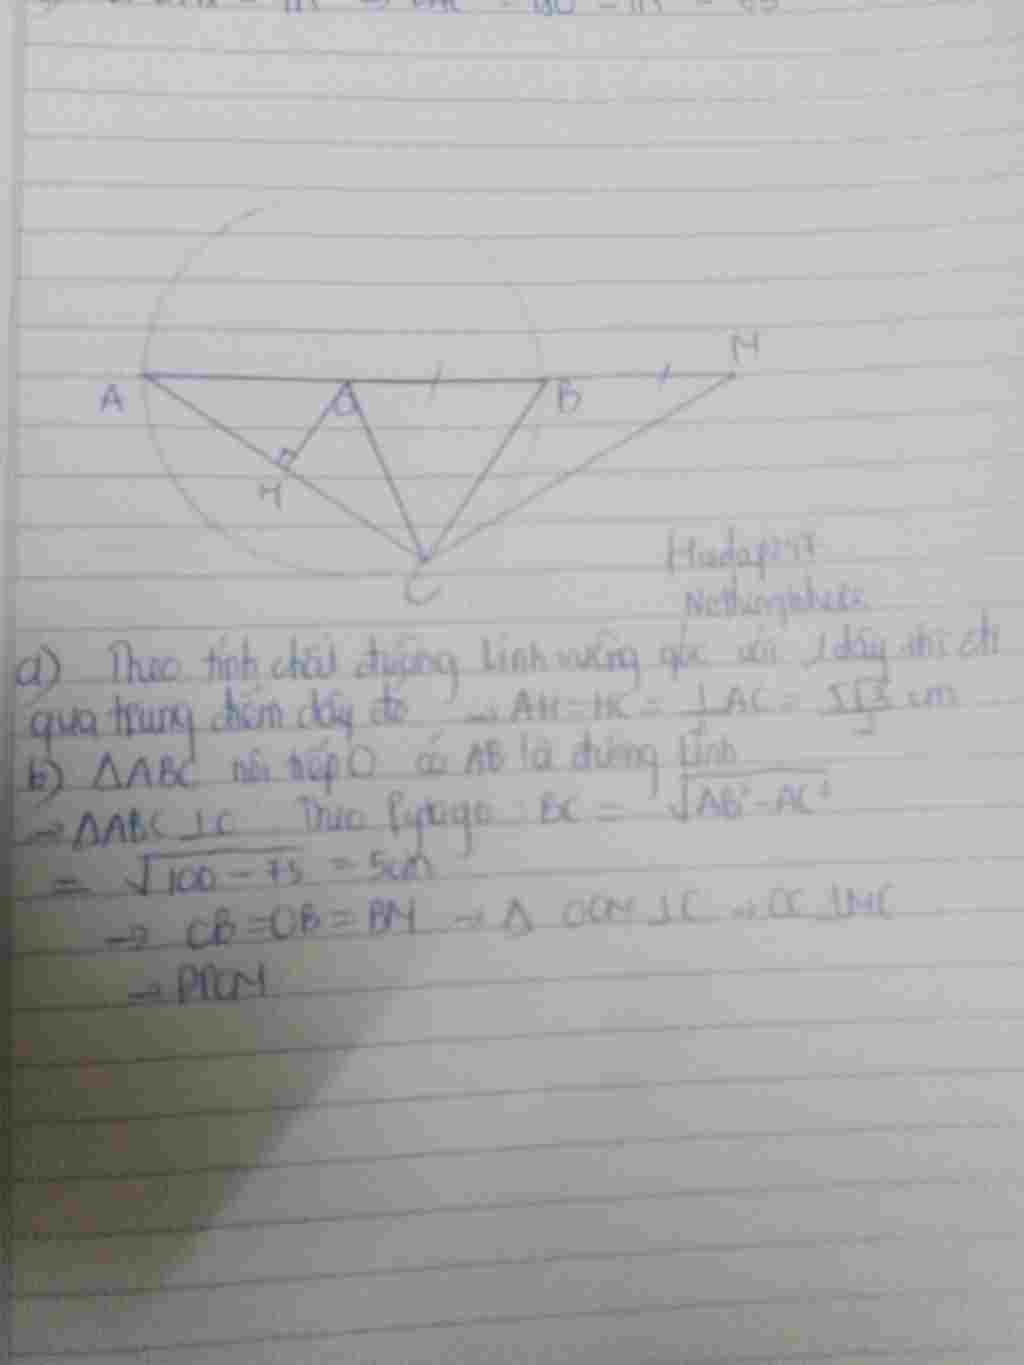 M
A
O
B
H
C
a) Theo tính chất đường kính vuông góc với 1 dây thì đi
qua trung điểm dây đó → AH = HC = 1/2 AC = 5√3/2 cm
b) ΔABC nội tiếp O có AB là đường kính
→ ΔABC ⊥ C Theo Pytago : BC = √AB² - AC²
= √100 - 75 = 5cm
→ CB = OB = BM → Δ OCM ⊥ C → OC ⊥ MC
→ ĐPCM